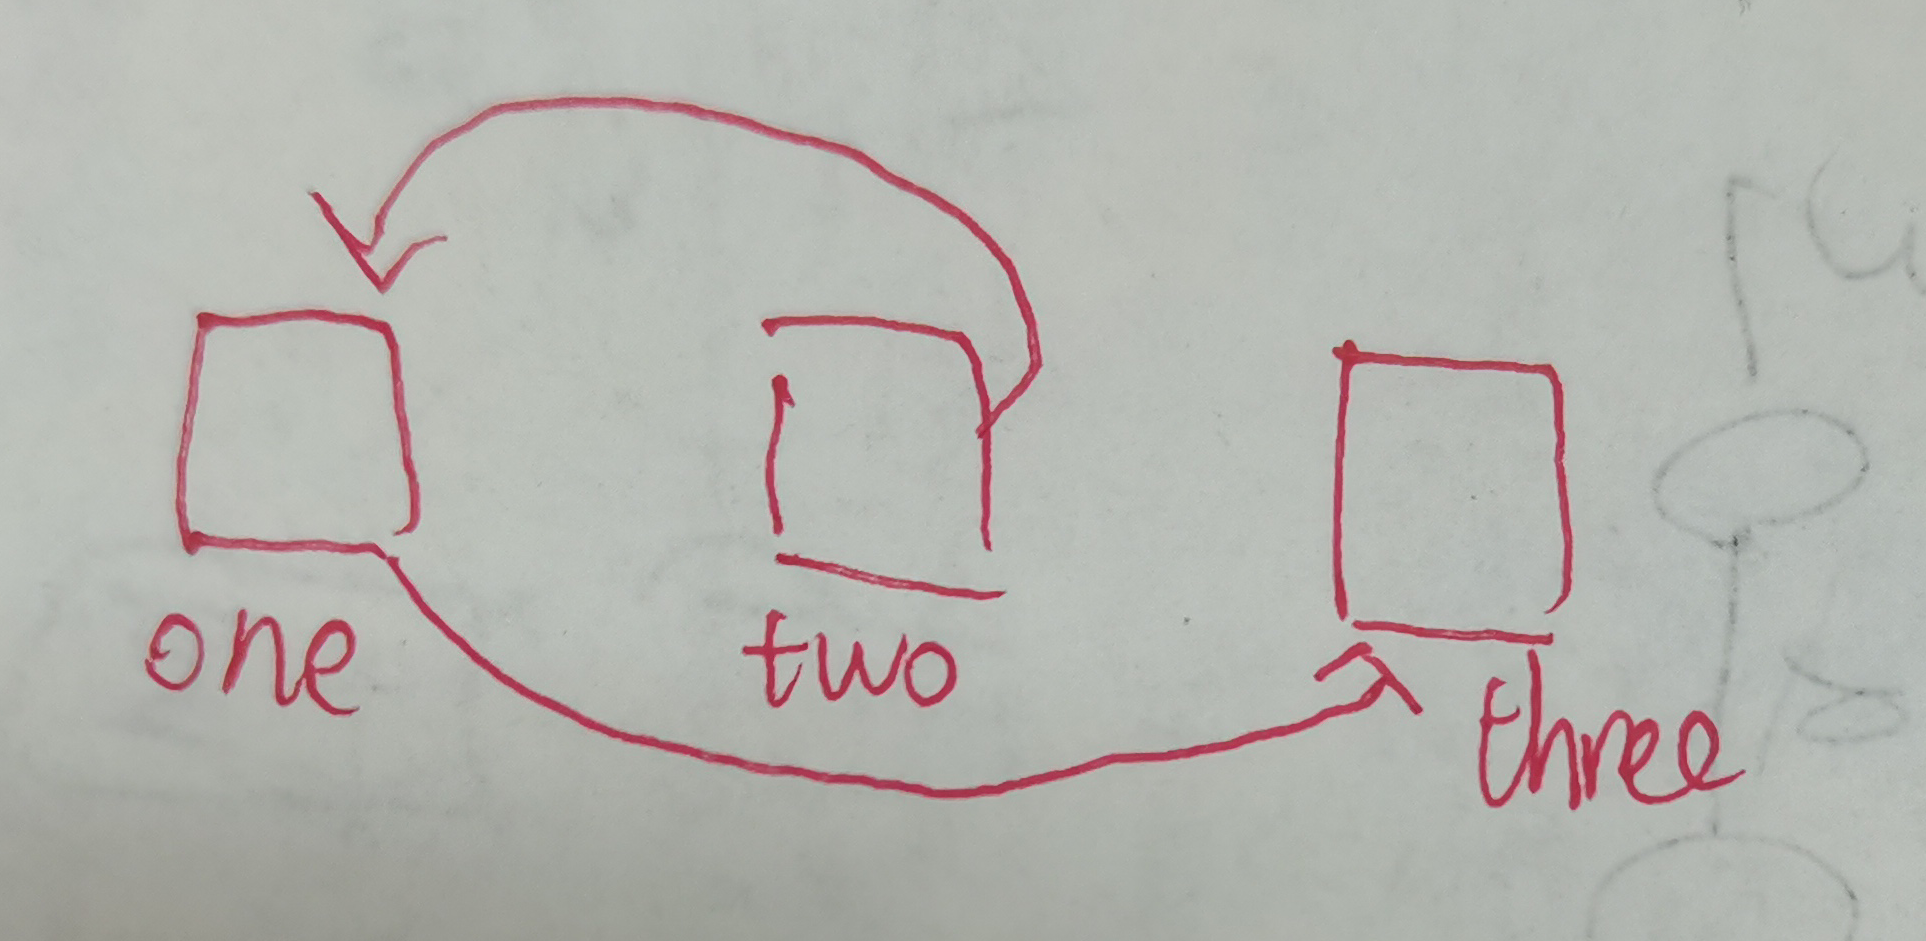 one two three